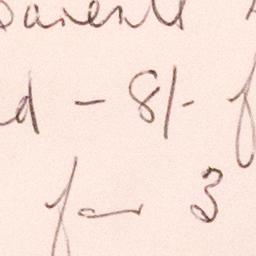 parents
d - 8/- f
for 3